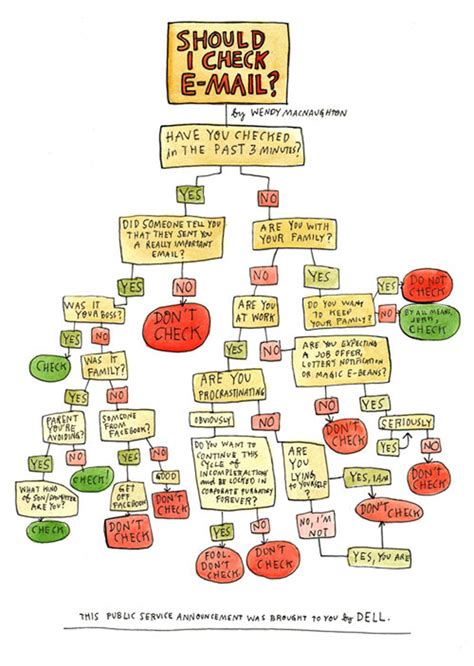 SHOULD
I CHECK
E-MAIL?
by WENDY MACNAUGHTON
HAVE YOU CHECKED
in THE PAST 3 MINUTES?
YES
NO
DID SOMEONE TELL YOU
THAT THEY SENT YOU
A REALLY IMPORTANT
EMAIL?
ARE YOU WITH
YOUR FAMILY?
YES
NO
NO
YES
WAS IT
YOUR BOSS?
DON'T
CHECK
ARE YOU
AT WORK
DO YOU WANT
TO KEEP
YOUR FAMILY?
YES
DO NOT
CHECK
NO
BY ALL MEANS,
JERK,
CHECK
YES
NO
CHECK
WAS IT
FAMILY?
YES
NO
ARE YOU
PROCRASTINATING
ARE YOU EXPECTING
A JOB OFFER,
LOTTERY NOTIFICATION
OR MAGIC E-BEANS?
YES
NO
PARENT
YOU'RE
AVOIDING?
SOMEONE
FROM
FACEBOOK?
OBVIOUSLY
NO
NO
YES
DON'T
CHECK
SERIOUSLY
YES
NO
YES
NO
CHECK!
GOOD
DO YOU WANT TO
CONTINUE THIS
CYCLE of
INCOMPLETE ACTIONS
AND BE LOCKED IN
CORPORATE PURGATORY
FOREVER?
ARE
YOU
LYING
to YOURSELF?
YES
NO
DON'T
CHECK
YES, I AM
WHAT KIND
OF SON/DAUGHTER
ARE YOU?
CHECK
GET
OFF
FACEBOOK
DON'T
CHECK
DON'T
CHECK
DON'T CHECK
YES
NO
NO, I'M
NOT
YES, YOU ARE
FOOL.
DON'T
CHECK
DON'T
CHECK
THIS PUBLIC SERVICE ANNOUNCEMENT WAS BROUGHT TO YOU by DELL.